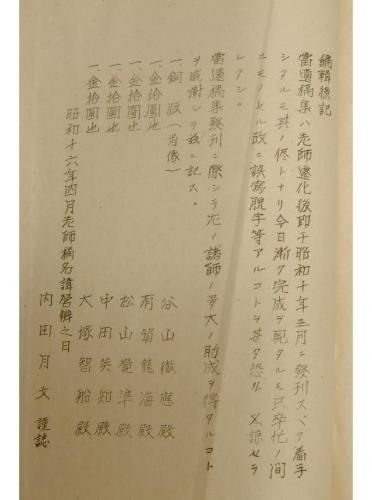 編輯後記
當遺稿集ハ老師遷化後即チ昭和十年三月ニ發刊スベク着手
シタルモ其ノ侭トナリ今日漸ク完成ヲ見タルモ只卒忙ノ間
ニモノセル故ニ誤寫脱字等アルコトヲ甚ダ恐ル 乂諒セラ
レタシ。
當遺稿集發刊ニ際シテ左ノ諸師ノ多大ノ助成ヲ得タルコト
ヲ感謝シテ玆ニ記ス。
一、銅版(肖像) 谷山徹應殿
一、金拾圓也 有賀龍海殿
一、金拾圓也 松山覺準殿
一、金拾圓也 中田英知殿
一、金拾圓也 大塚智船殿
昭和十六年四月老師稱名諱營辦之日
内田月文 謹誌